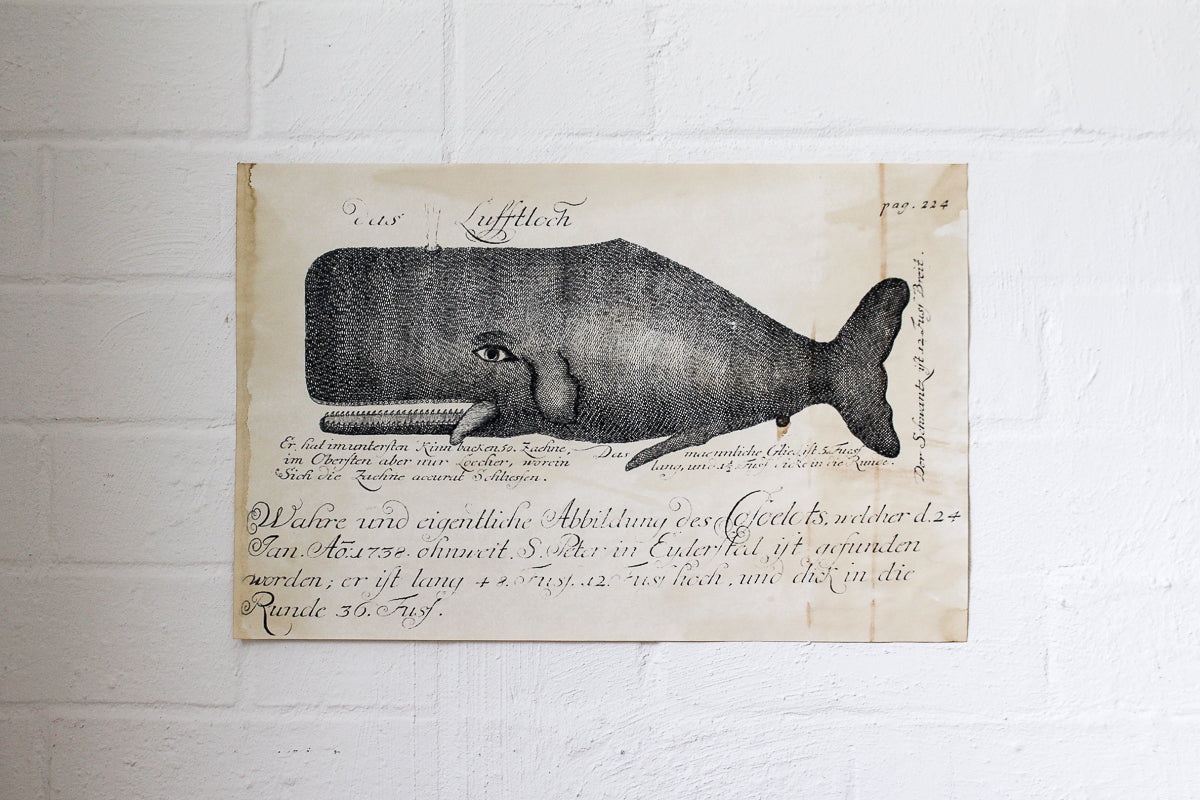 das Lufftloch
pag. 224
Der Schwantz ist 12 Fuss Breit.
Er hat im untersten Kinn backen 50. Zaehne,
im Obersten aber nur Loecher, worein
Sich die Zaehne accurat Schliessen.
Das maennliche Glied ist 5 Fuss
lang, und 1½ Fuss dicke in die Runde.
Wahre und eigentliche Abbildung des welcher d. 24
Jan. Ao. 1738. ohnweit S. Peter in Eydersted ist gefunden
worden; er ist lang 48. Fuss. 12 Fuss hoch, und dick in die
Runde 36. Fuss.